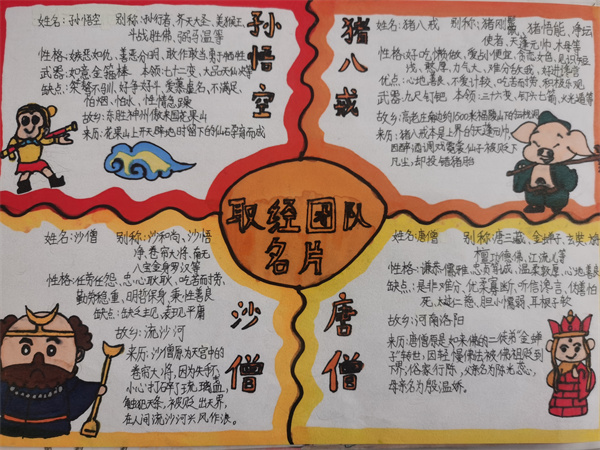 孙悟空
姓名：孙悟空 别称：孙行者、齐天大圣、美猴王、
斗战胜佛、弼马温等
性格：嫉恶如仇、善恶分明、敢作敢当
武器：如意金箍棒 本领：七十二变、
缺点：好争好斗、爱慕虚名、不满足、
怕烟、怕水、性情急躁
故乡：东胜神州傲来国花果山
来历：花果山上开天辟地时留下的仙石孕育而成
猪八戒
姓名：猪八戒 别称：猪刚鬣、猪悟能、净坛
使者、天蓬元帅、木母等
性格：好吃懒做、爱占小便宜、贪恋女色、
憨厚、力气大、难分敌我、好进谗言
优点：心地善良、不爱计较、吃苦耐劳、积极乐观
武器：九尺钉耙 本领：三十六变、
来历：猪八戒本是上界的天蓬元帅
因醉酒调戏霓裳仙子被贬下
凡尘，却投错猪胎
取经团队
名片
姓名：沙僧 别称：沙和尚、沙悟
净、卷帘大将、南无
八宝金身罗汉等
性格：任劳任怨、忠心耿耿、吃苦而劳、
勤劳稳重、明哲保身、秉性善良
缺点：缺乏主见、表现平庸
故乡：流沙河
来历：沙僧原为天宫中的
卷帘大将，因为失手，
小心打碎了琉璃盏，
触犯天条，被贬出天界，
在人间流沙河兴风作浪。
沙僧
姓名：唐僧 别称：唐三藏、金蝉子、玄奘、
旃檀功德佛、江流儿等
性格：谦恭儒雅、忠贞有诚、温柔敦厚、心地善良
缺点：是非不分、优柔寡断、听信谗言、
死、太过仁慈、胆小懦弱、耳根子软
故乡：河南洛阳
来历：唐僧是如来佛的二徒弟"金蝉
子"转世，因轻慢佛法被佛祖贬到
下界，俗家行陈，父亲名为陈光蕊，
母亲名为殷温娇。
唐僧